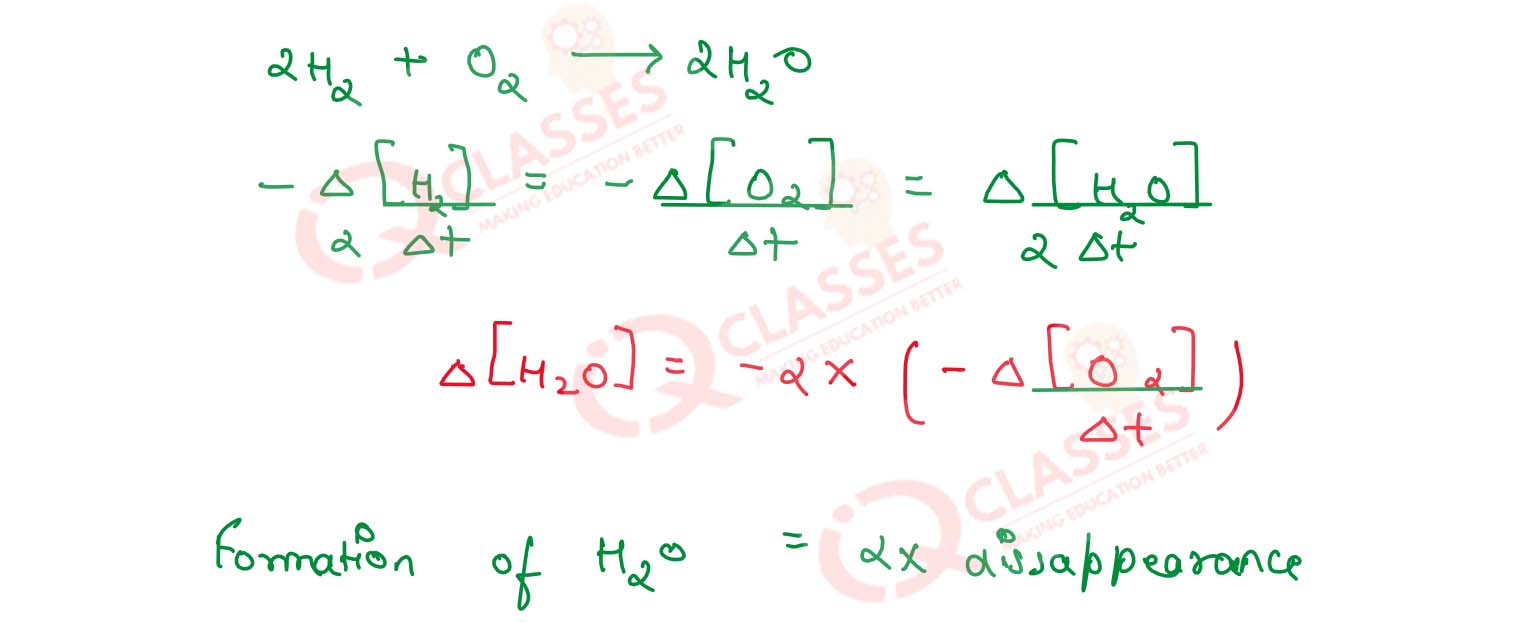 2H₂ + O₂ ⟶ 2H₂O
- Δ[H₂] / 2 Δt = - Δ[O₂] / Δt = Δ[H₂O] / 2 Δt
Δ[H₂O] = -2 × ( - Δ[O₂] / Δt )
Formation of H₂O = 2x disappearance
iQ CLASSES
MAKING EDUCATION BETTER
iQ CLASSES
MAKING EDUCATION BETTER
iQ CLASSES
MAKING EDUCATION BETTER